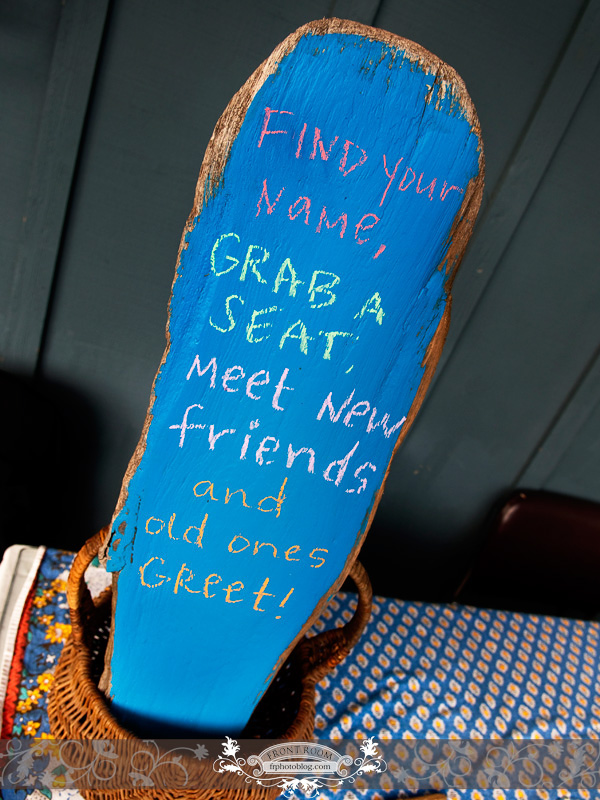 FIND Your
NAME,
GRAB A
SEAT,
Meet New
friends
and
old ones
GReet!
FRONT ROOM
frphotoblog.com